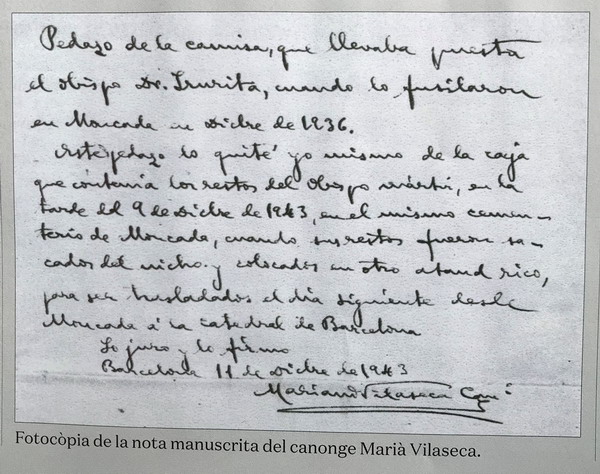 Pedazo de la camisa, que llevaba puesta
el obispo Dr. Irurita, cuando lo fusilaron
en Moncada en Dicbre de 1936.
Este pedazo lo quité yo mismo de la caja
que contenía los restos del obispo mártir, en la
tarde del 9 de Dicbre de 1943, en el mismo cemen-
terio de Moncada, cuando sus restos fueron sa-
cados del nicho y colocados en otro ataud rico,
para ser trasladados el día siguiente desde
Moncada á la catedral de Barcelona
Lo juro y lo firmo
Barcelona 11 de Dicbre de 1943
Mariano Vilaseca
Fotocòpia de la nota manuscrita del canonge Marià Vilaseca.